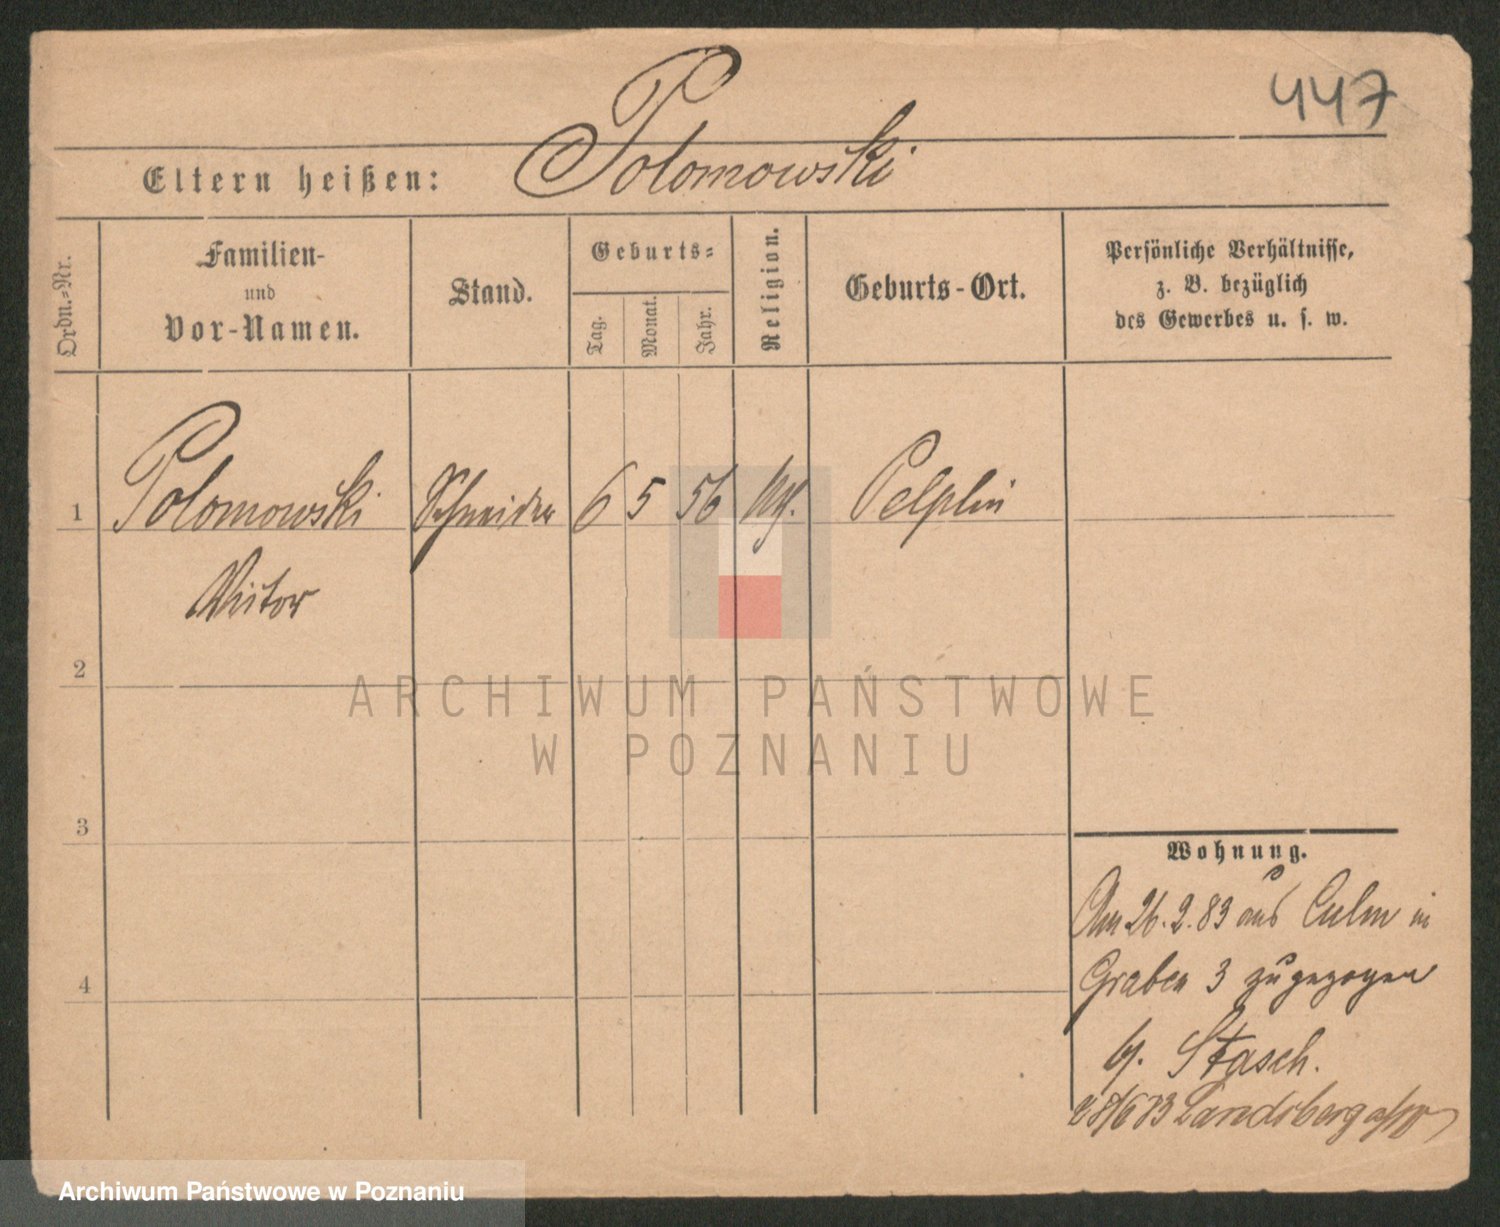 447
Eltern heißen: Polomowski
Ordn.-Nr.
Familien-
und
Vor-Namen.
Stand.
Geburts-
Tag.
Monat.
Jahr.
Religion.
Geburts-Ort.
Persönliche Verhältnisse,
z. B. bezüglich
des Gewerbes u. s. w.
1 Polomowski Schneider 6 5 56 Pelplin
2
3
4
Wohnung.
Am 26.2.83 aus Culm in
Graben 3 zugezogen
bj. Stasch.
8/6 83 Landsberg
ARCHIWUM PAŃSTWOWE
W POZNANIU
Archiwum Państwowe w Poznaniu